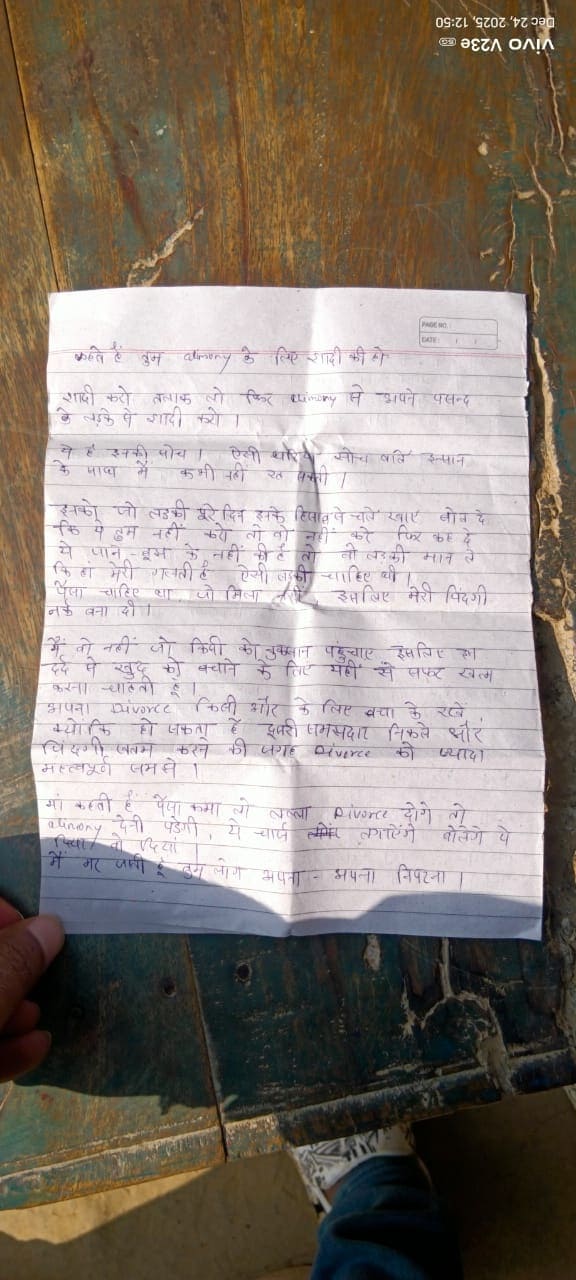 Dec 24, 2025, 12:50
vivo V23e 5G
PAGE NO.:
DATE: / /
कहते हैं तुम alimony के लिए शादी की हो
शादी करो तलाक लो फिर alimony से अपने पसन्द
के लड़के से शादी करो ।
ये है इनकी सोच । ऐसी घटिया सोच वाले इन्सान
के साथ में कभी नहीं रह सकती ।
इनको जो लड़की पूरे दिन इनके हिसाब से चले खाए बोल दे
कि ये तुम नहीं करो तो वो नहीं करे फिर कह दे
ये जान-बूझ के नहीं की है तो वो लड़की मान ले
कि हां मेरी गलती है ऐसी लड़की चाहिए थी ।
पैसा चाहिए था जो मिला नहीं, इसलिए मेरी जिंदगी
नर्क बना दी ।
मैं वो नहीं जो किसी को नुकसान पहुंचाए इसलिए इस
दर्द से खुद को बचाने के लिए यहीं से सफर खत्म
करना चाहती हूं ।
अपना Divorce किसी और के लिए बचा के रखें,
क्योंकि हो सकता है दूसरी समझदार निकले और
जिंदगी खतम करने की जगह Divorce को ज्यादा
महत्वपूर्ण समझे ।
मां कहती हैं पैसा कमा लो लल्ला Divorce दोगे तो
alimony देनी पड़ेगी, ये चार्ज लगाएंगे बोलेंगे ये
दिया वो दिया ।
मैं मर जाती हूं तुम लोग अपना - अपना निपटना ।